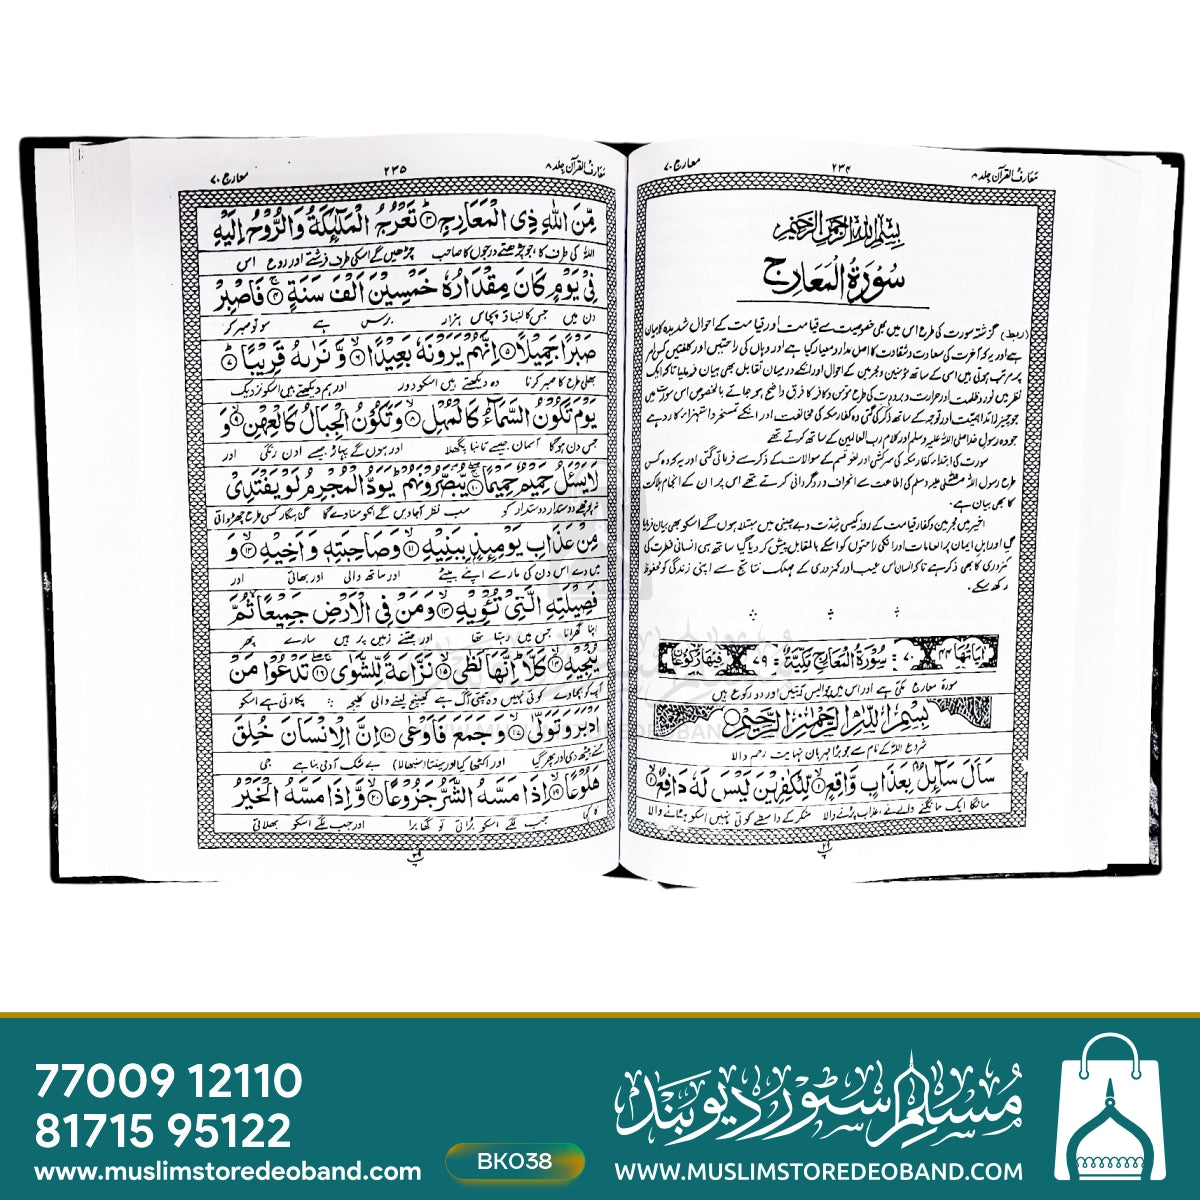 معارف القرآن جلد ۸
۲۳۴
معارج ۷۰
بسم الله الرحمن الرحيم
سُوۡرَةُ الۡمَعَارِج
(ربط) گزشتہ سورت کی طرح اس میں بھی خصوصیت سے قیامت اور قیامت کے احوال شدیدہ کا بیان
ہے اور یہ کہ آخرت کی سعادت و شقاوت کا اصل مدار و معیار کیا ہے اور وہاں کی راحتیں اور کلفتیں کس امر
پر مرتب ہوتی ہیں اسی کے ساتھ مؤمنین و مجرمین کے احوال اور انکے درمیان تقابل بھی بیان فرمایا تاکہ ایک
نظر میں نور و ظلمت اور حرارت و برودت کی طرح مؤمن و کافر کا فرق واضح ہو جائے بالخصوص اس سورت میں
جو چیز زائد اہمیت اور توجہ کے ساتھ ذکر کی گئی وہ کفار مکہ کی مخالفت اور انکے تمسخر و استہزاء کا رد ہے
جو وہ رسول خدا صلی اللہ علیہ وسلم اور کلام رب العالمین کے ساتھ کرتے تھے
سورت کی ابتداء کفار مکہ کی سرکشی اور لغو قسم کے سوالات کے ذکر سے فرمائی گئی اور یہ کہ وہ کس
طرح رسول اللہ صلی اللہ علیہ وسلم کی اطاعت سے انحراف و روگردانی کرتے تھے اس پر ان کے انجام ہلاکت
کا بھی بیان ہے۔
اخیر میں مجرمین و کفار قیامت کے روز کیسی شدت و بے چینی میں مبتلا ہوں گے اسکو بھی بیان فرمایا
گیا اور اہل ایمان پر انعامات اور انکی راحتوں کو اسکے بالمقابل پیش کر دیا گیا ساتھ ہی انسانی فطرت کی
کمزوری کا بھی ذکر ہے تاکہ انسان اس عیب اور کمزوری کے مہلک نتائج سے اپنی زندگی کو محفوظ
رکھ سکے۔
اٰیاتھا ۴۴ ۷۰ : سُوۡرَةُ الۡمَعَارِجِ مَكِّيَّةٌ : ۷۹ فیھا رکوعان
سورۃ معارج مکی ہے اور اس میں چوالیس آیتیں اور دو رکوع ہیں
بِسۡمِ اللّٰهِ الرَّحۡمٰنِ الرَّحِيۡمِ
شروع اللہ کے نام سے جو بڑا مہربان نہایت رحم والا
سَاَلَ سَآئِلٌۢ بِعَذَابٍ وَّاقِعٍ ۙ‏﴿۱﴾ لِّلۡكٰفِرِيۡنَ لَيۡسَ لَهٗ دَافِعٌ ۙ‏﴿۲﴾
مانگا ایک مانگنے والے نے، عذاب پڑنے والا منکر کے واسطے کوئی نہیں اسکو ہٹانے والا
معارف القرآن جلد ۸
۲۳۵
معارج ۷۰
مِّنَ اللّٰهِ ذِى الۡمَعَارِجِ ؕ‏﴿۳﴾ تَعۡرُجُ الۡمَلٰٓئِكَةُ وَالرُّوۡحُ اِلَيۡهِ
اللہ کی طرف کا، جو چڑھتے درجوں کا صاحب چڑھیں گے اسکی طرف فرشتے اور روح اس
فِىۡ يَوۡمٍ كَانَ مِقۡدَارُهٗ خَمۡسِيۡنَ اَلۡفَ سَنَةٍ ۚ‏﴿۴﴾ فَاصۡبِرۡ
دن میں جس کا لنباؤ پچاس ہزار برس ہے سو تو صبر کر
صَبۡرًا جَمِيۡلًا‏﴿۵﴾ اِنَّهُمۡ يَرَوۡنَهٗ بَعِيۡدًا ۙ‏﴿۶﴾ وَّنَرٰٮهُ قَرِيۡبًا ؕ‏﴿۷﴾
بھلی طرح کا صبر کرنا وہ دیکھتے ہیں اسکو دور اور ہم دیکھتے ہیں اسکو نزدیک
يَوۡمَ تَكُوۡنُ السَّمَآءُ كَالۡمُهۡلِ ۙ‏﴿۸﴾ وَتَكُوۡنُ الۡجِبَالُ كَالۡعِهۡنِ ۙ‏﴿۹﴾ وَ
جس دن ہوگا آسمان جیسے تانبا پگھلا اور ہوں گے پہاڑ جیسے اون رنگی اور
لَا يَسۡئَلُ حَمِيۡمٌ حَمِيۡمًا ۖۚ‏﴿۱۰﴾ يُّبَصَّرُوۡنَهُمۡ ؕ يَوَدُّ الۡمُجۡرِمُ لَوۡ يَفۡتَدِىۡ
نہ پوچھے دوستدار دوستدار کو سب نظر آجاویں گے انکو مناوے گا گناہگار کسی طرح چھڑوائی
مِنۡ عَذَابِ يَوۡمِٮِٕذٍۭ بِبَنِيۡهِ ۙ‏﴿۱۱﴾ وَ صَاحِبَتِهٖ وَاَخِيۡهِ ۙ‏﴿۱۲﴾ وَ
میں دے اس دن کی مار سے اپنے بیٹے اور ساتھ والی اور بھائی اور
فَصِيۡلَتِهِ الَّتِىۡ تُـــْٔوِيۡهِ ۙ‏﴿۱۳﴾ وَمَنۡ فِى الۡاَرۡضِ جَمِيۡعًا ۙ ثُمَّ
اپنا گھرانا جس میں رہتا تھا اور جتنے زمین پر ہیں سارے پھر
يُنۡجِيۡهِ ۙ‏﴿۱۴﴾ كَلَّا ؕ اِنَّهَا لَظٰى ۙ‏﴿۱۵﴾ نَزَّاعَةً لِّلشَّوٰى ۖۚ‏﴿۱۶﴾ تَدۡعُوۡا مَنۡ
آپ کو بچاوے کوئی نہیں وہ تپتی آگ ہے کھینچ لینے والی کلیجہ پکارتی ہے اسکو
اَدۡبَرَ وَتَوَلّٰى ۙ‏﴿۱۷﴾ وَجَمَعَ فَاَوۡعٰى‏﴿۱۸﴾ اِنَّ الۡاِنۡسَانَ خُلِقَ
جسنے پیٹھ دی اور پھر گیا اور اکٹھا کیا اور سینتا (سنبھالا) بے شک آدمی بنا ہے جی
هَلُوۡعًا ۙ‏﴿۱۹﴾ اِذَا مَسَّهُ الشَّرُّ جَزُوۡعًا ۙ‏﴿۲۰﴾ وَّاِذَا مَسَّهُ الۡخَيۡرُ
کا کچا جب لگے اسکو برائی تو گھابرا اور جب لگے اسکو بھلائی
77009 12110
81715 95122
www.muslimstoredeoband.com
BK038
مسلم سٹور دیوبند
WWW.MUSLIMSTOREDEOBAND.COM